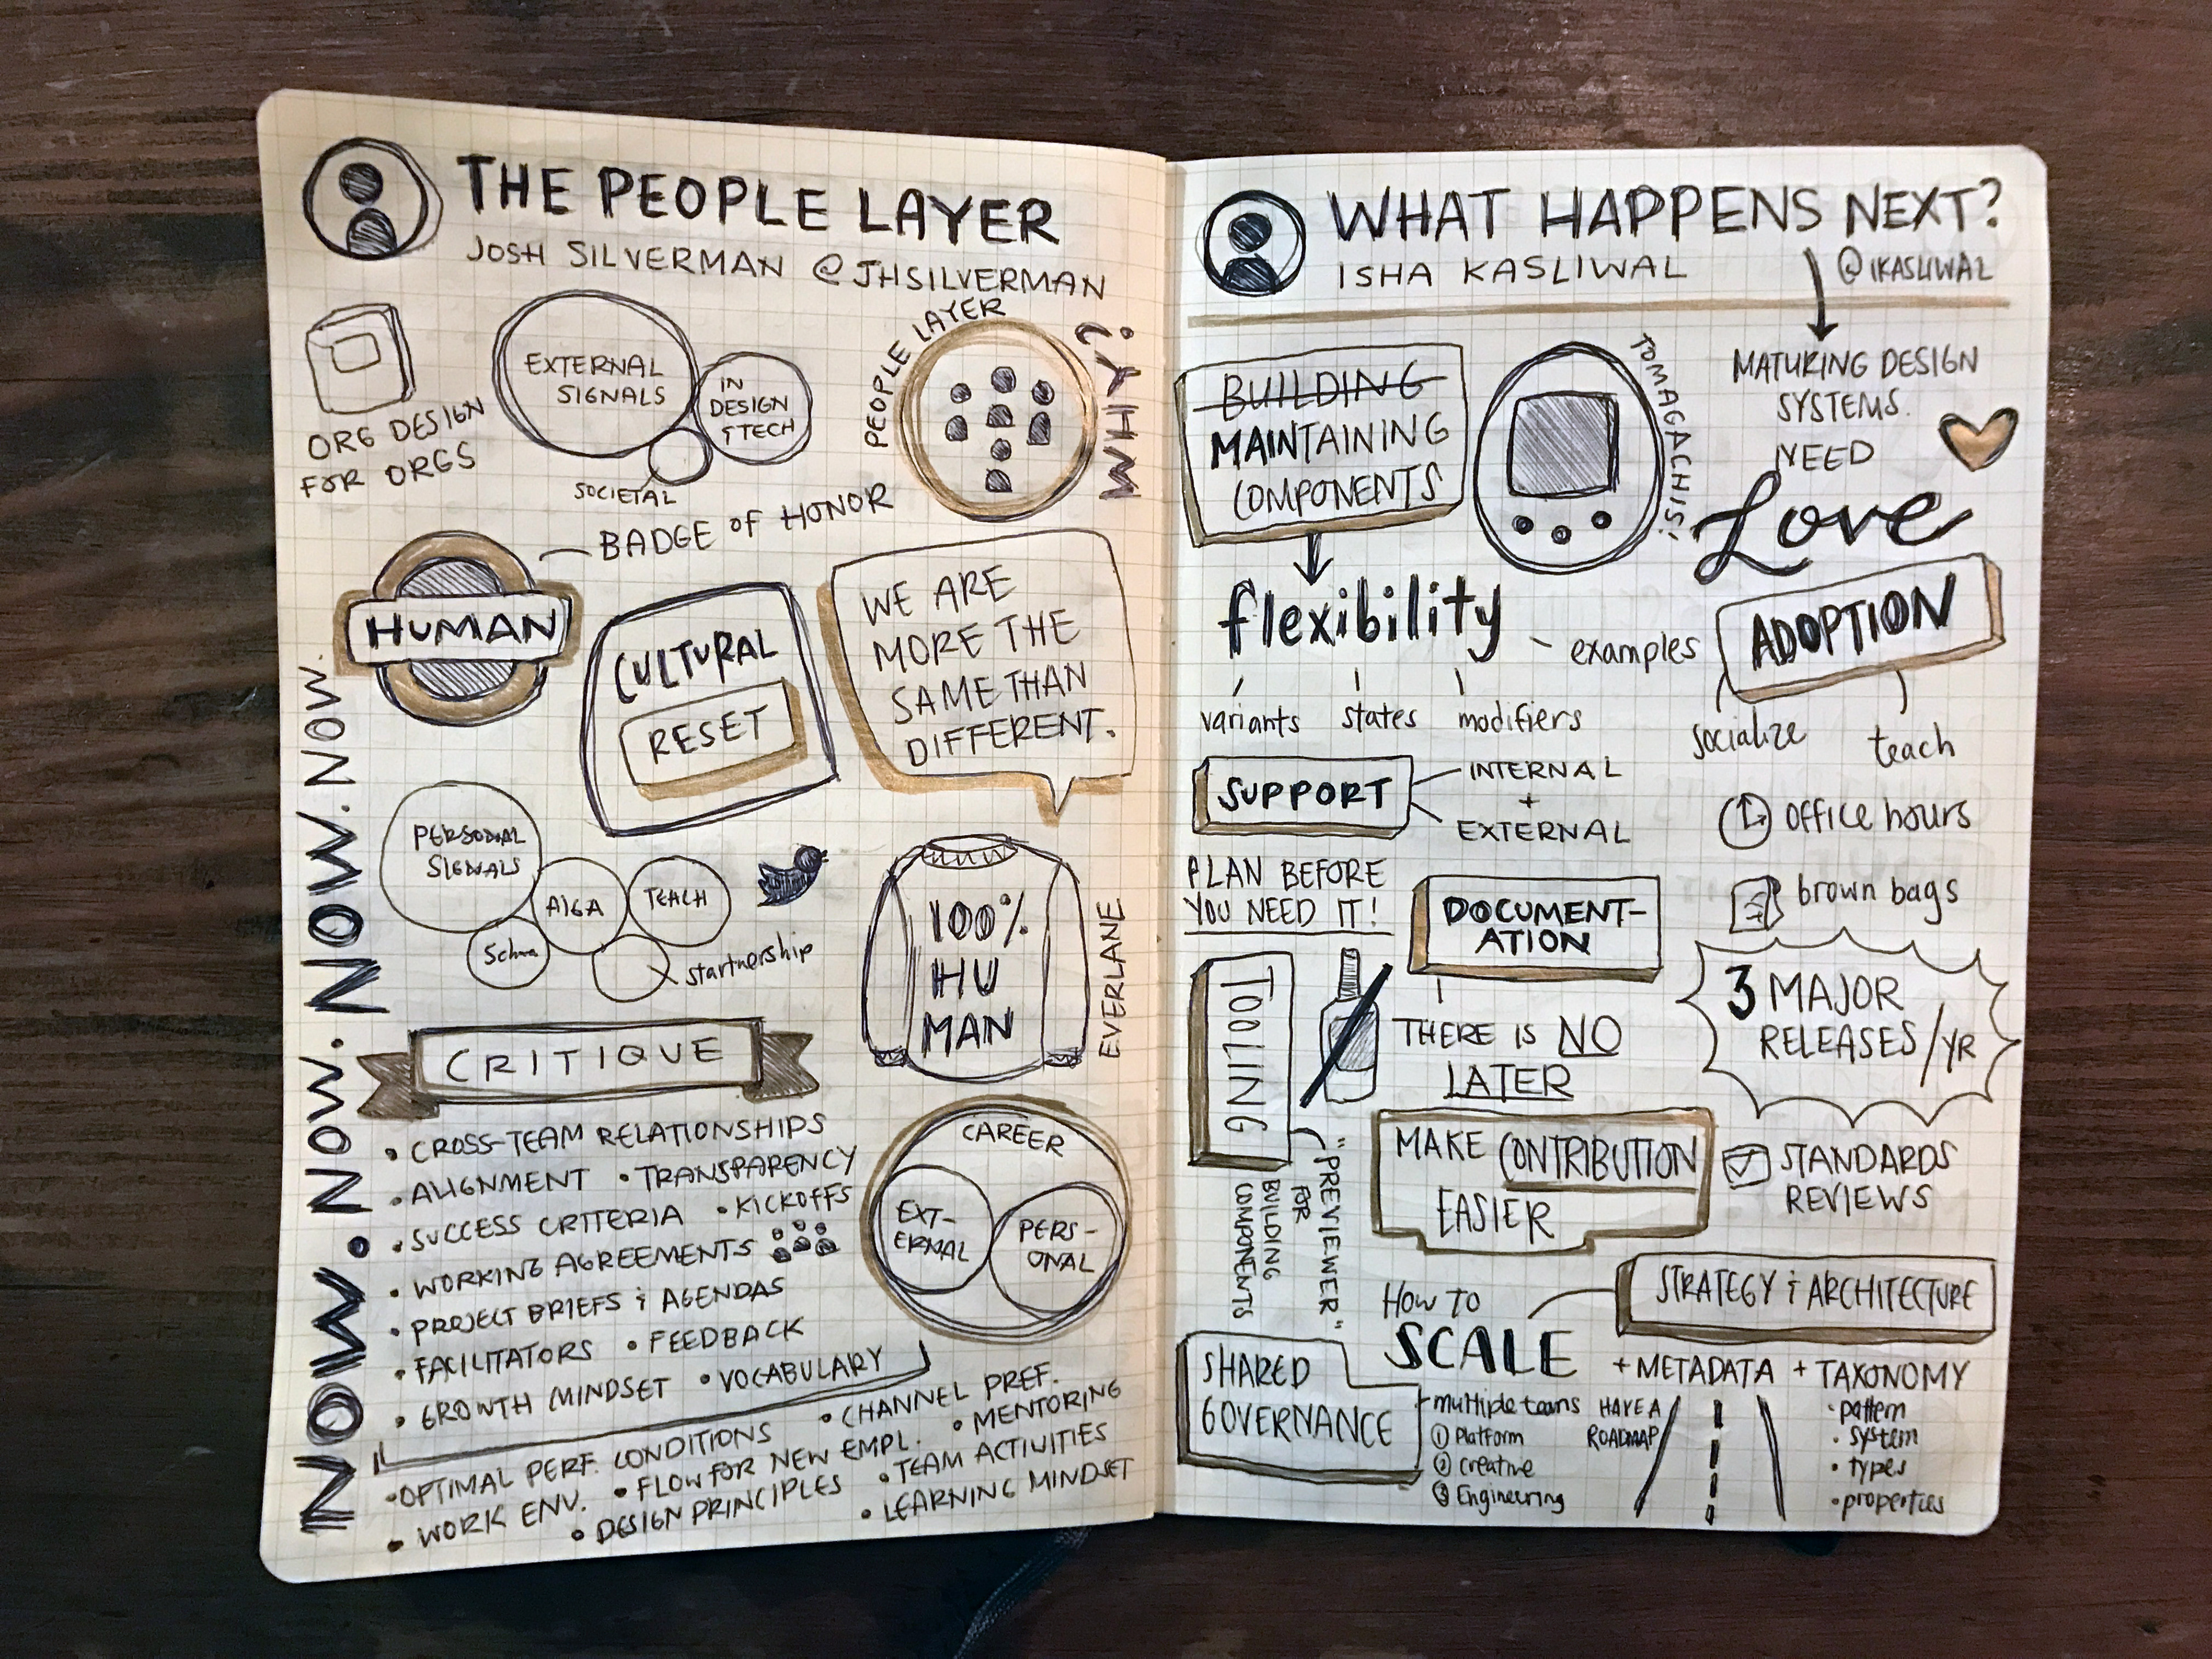 THE PEOPLE LAYER
JOSH SILVERMAN @JHSILVERMAN
ORG DESIGN
FOR ORGS
EXTERNAL
SIGNALS
IN
DESIGN
& TECH
SOCIETAL
PEOPLE LAYER
WHY?
BADGE OF HONOR
HUMAN
CULTURAL
RESET
WE ARE
MORE THE
SAME THAN
DIFFERENT.
NOW. NOW. NOW. NOW. NOW.
PERSONAL
SIGNALS
AIGA
TEACH
startnership
100%
HU
MAN
EVERLANE
CRITIQUE
• CROSS-TEAM RELATIONSHIPS
• ALIGNMENT • TRANSPARENCY
• SUCCESS CRITERIA • KICKOFFS
• WORKING AGREEMENTS
• PROJECT BRIEFS & AGENDAS
• FACILITATORS • FEEDBACK
• GROWTH MINDSET • VOCABULARY
CAREER
EXT-
ERNAL
PERS-
ONAL
• OPTIMAL PERF. CONDITIONS • CHANNEL PREF.
• WORK ENV. • FLOW FOR NEW EMPL. • MENTORING
• DESIGN PRINCIPLES • TEAM ACTIVITIES
• LEARNING MINDSET
WHAT HAPPENS NEXT?
ISHA KASLIWAL @IKASLIWAL
BUILDING
MAINTAINING
COMPONENTS
TOMAGACHIS!
MATURING DESIGN
SYSTEMS
NEED
Love
flexibility
examples
variants states modifiers
ADOPTION
socialize
teach
SUPPORT
INTERNAL
+
EXTERNAL
office hours
brown bags
PLAN BEFORE
YOU NEED IT!
DOCUMENT-
ATION
THERE IS NO
LATER
3 MAJOR
RELEASES/YR
TOOLING
"PREVIEWER"
FOR
BUILDING
COMPONENTS
MAKE CONTRIBUTION
EASIER
STANDARDS
REVIEWS
STRATEGY & ARCHITECTURE
HOW TO
SCALE
+ METADATA + TAXONOMY
• pattern
• system
• types
• properties
SHARED
GOVERNANCE
multiple teams
① Platform
② Creative
③ Engineering
HAVE A
ROADMAP